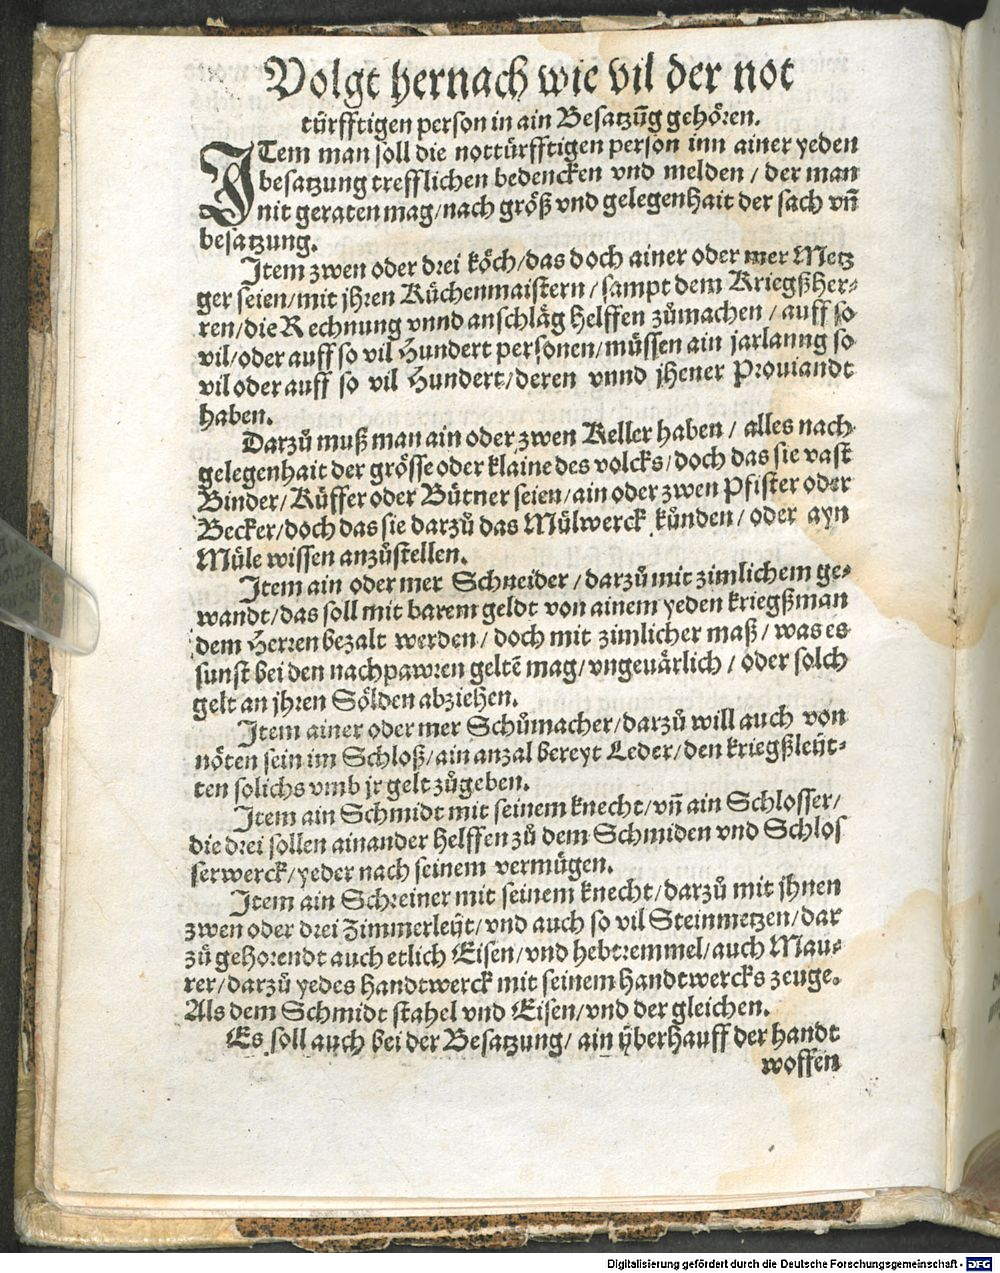 Volgt hernach wie vil der not
türfftigen person in ain Besatzūg gehören.
ITem man soll die nottürfftigen person inn ainer yeden
besatzung trefflichen bedencken vnd melden / der man
nit geraten mag / nach größ vnd gelegenhait der sach vñ
besatzung.
Item zwen oder drei köch / das doch ainer oder mer Metz
ger seien / mit jhren Küchenmaistern / sampt dem Kriegßher⸗
ren / die Rechnung vnnd anschläg helffen zůmachen / auff so
vil / oder auff so vil Hundert personen / müssen ain jarlanng so
vil oder auff so vil Hundert / deren vnnd jhener Prouiandt
haben.
Darzů muß man ain oder zwen Keller haben / alles nach
gelegenhait der grösse oder klaine des volcks / doch das sie vast
Binder / Küffer oder Bütner seien / ain oder zwen Pfister oder
Becker / doch das sie darzů das Mülwerck künden / oder ayn
Müle wissen anzůstellen.
Item ain oder mer Schneider / darzů mit zimlichem ge⸗
wandt / das soll mit barem geldt von ainem yeden kriegßman
dem Herren bezalt werden / doch mit zimlicher maß / was es
sunst bei den nachpawren geltē mag / vngeuärlich / oder solch
gelt an jhren Sölden abziehen.
Item ainer oder mer Schůmacher / darzů will auch von
nöten sein im Schloß / ain anzal bereyt Leder / den kriegßleüt⸗
ten solichs vmb jr gelt zůgeben.
Item ain Schmidt mit seinem knecht / vñ ain Schlosser /
die drei sollen ainander helffen zů dem Schmiden vnd Schlos
serwerck / yeder nach seinem vermügen.
Item ain Schreiner mit seinem knecht / darzů mit jhnen
zwen oder drei Zimmerleüt / vnd auch so vil Steinmetzen / dar
zů gehorendt auch etlich Eisen / vnd hebtremmel / auch Mau⸗
rer / darzů yedes handtwerck mit seinem handtwercks zeuge.
Als dem Schmidt stahel vnd Eisen / vnd der gleichen.
Es soll auch bei der Besatzung / ain überhauff der handt
woffen
Digitalisierung gefördert durch die Deutsche Forschungsgemeinschaft - DFG